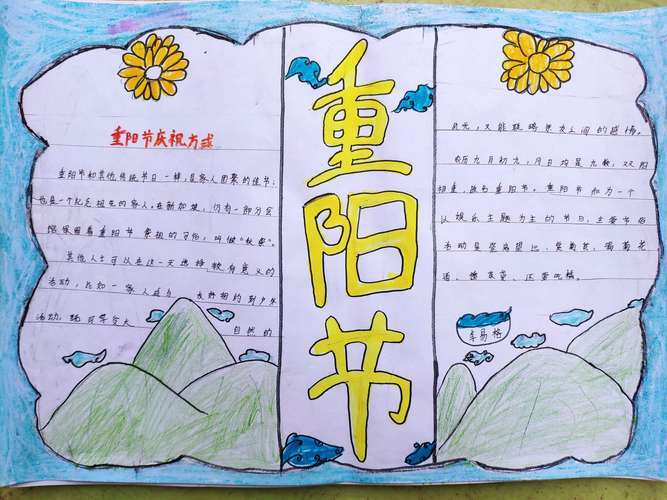 重阳节庆祝方式
重阳节和其他传统节日一样,是家人团聚的佳节;
也是一个纪念祖先的家人。在新加坡,仍有一部分公
保留着重阳节祭祖的习俗,叫做“秋祭”。
其他人士可以在这一天选择较有意义的
活动,比如一家人或与友好相约到户外
活动,既可享受大自然的
重阳节
此光,又能联络亲友之间的感情。
农历九月初九,月日均是九数,双阳
相重,故名重阳节。重阳节和为一个
以娱乐主题为主的节日,主要节俗
活动是登高望远、赏菊花、喝菊花
酒、插茱萸、还要吃糕。
易格